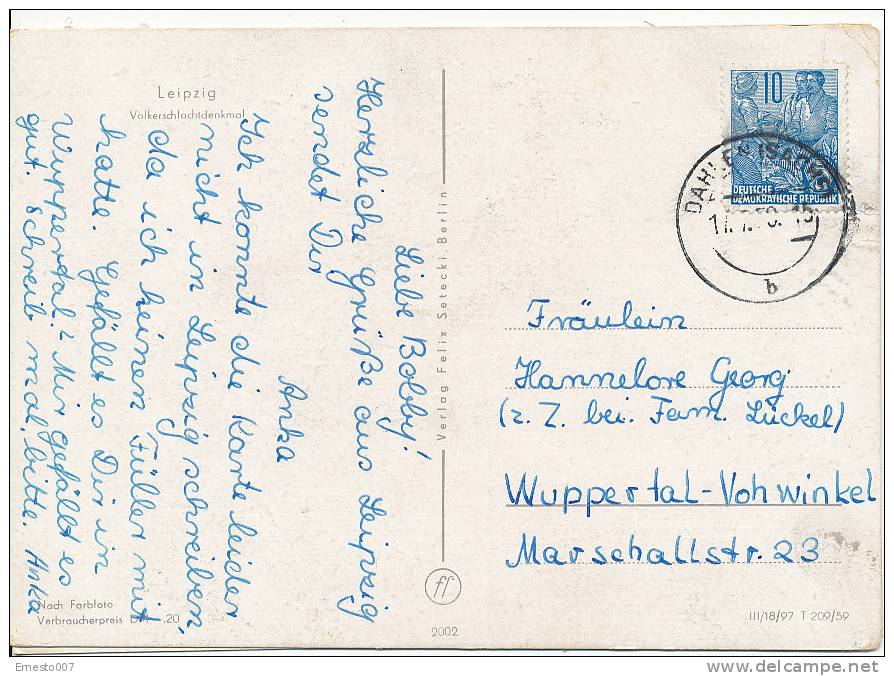 Leipzig
Völkerschlachtdenkmal
Liebe Bobby!
Herzliche Grüße aus Leipzig
sendet Dir
Anka
Ich konnte die Karte leider
nicht in Leipzig schreiben,
da ich keinen Füller mit
hatte. Gefällt es Dir in
Wuppertal? Mir gefällt es
gut. Schreib mal, bitte. Anka
Nach Farbfoto
Verbraucherpreis 20
Verlag Felix Setecki, Berlin
ff
2002
10
DEUTSCHE
DEMOKRATISCHE REPUBLIK
DAHLEN
b
Fräulein
Hannelore Georg
(z. Z. bei Fam. Lückel)
Wuppertal-Vohwinkel
Marschallstr. 23
III/18/97 T 209/59
Ernesto007
www.delcampe.net